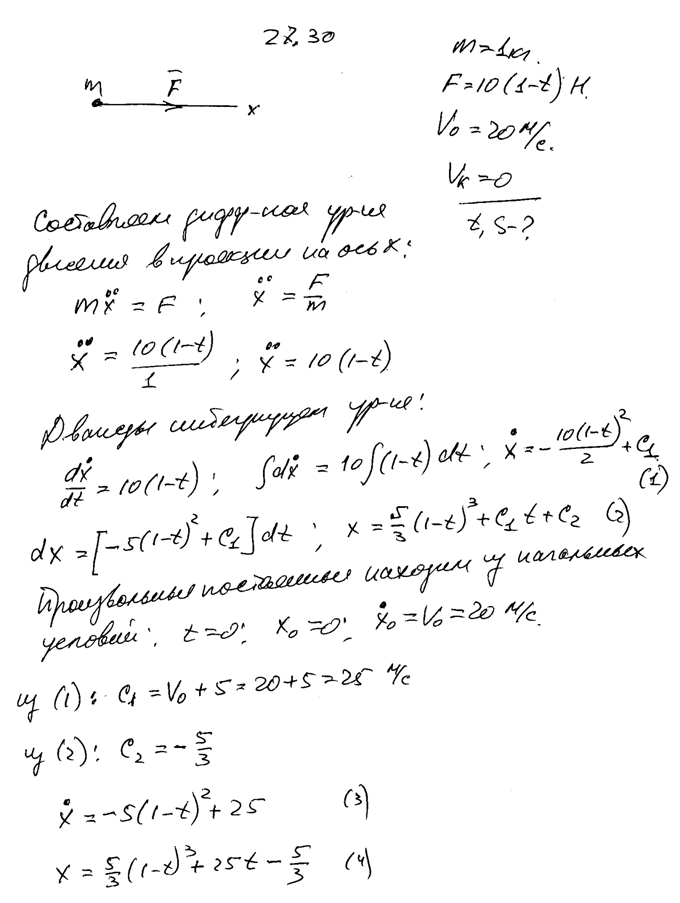 27.30
m = 1кг.
F = 10(1-t) Н.
V₀ = 20 м/с.
Vₖ = 0
t, S - ?
m F̅ x
Составляем дифф-ное ур-ие
движения в проекции на ось x:
mẍ = F ; ẍ = F/m
ẍ = 10(1-t)/1 ; ẍ = 10(1-t)
Дважды интегрируем ур-ие:
dẋ/dt = 10(1-t) ; ∫dẋ = 10∫(1-t)dt ; ẋ = -10(1-t)²/2 + C₁ (1)
dx = [-5(1-t)² + C₁]dt ; x = 5/3(1-t)³ + C₁t + C₂ (2)
Произвольные постоянные находим из начальных
условий: t=0; x₀=0; ẋ₀=V₀=20 м/с.
из (1): C₁ = V₀ + 5 = 20 + 5 = 25 м/с
из (2): C₂ = -5/3
ẋ = -5(1-t)² + 25 (3)
x = 5/3(1-t)³ + 25t - 5/3 (4)